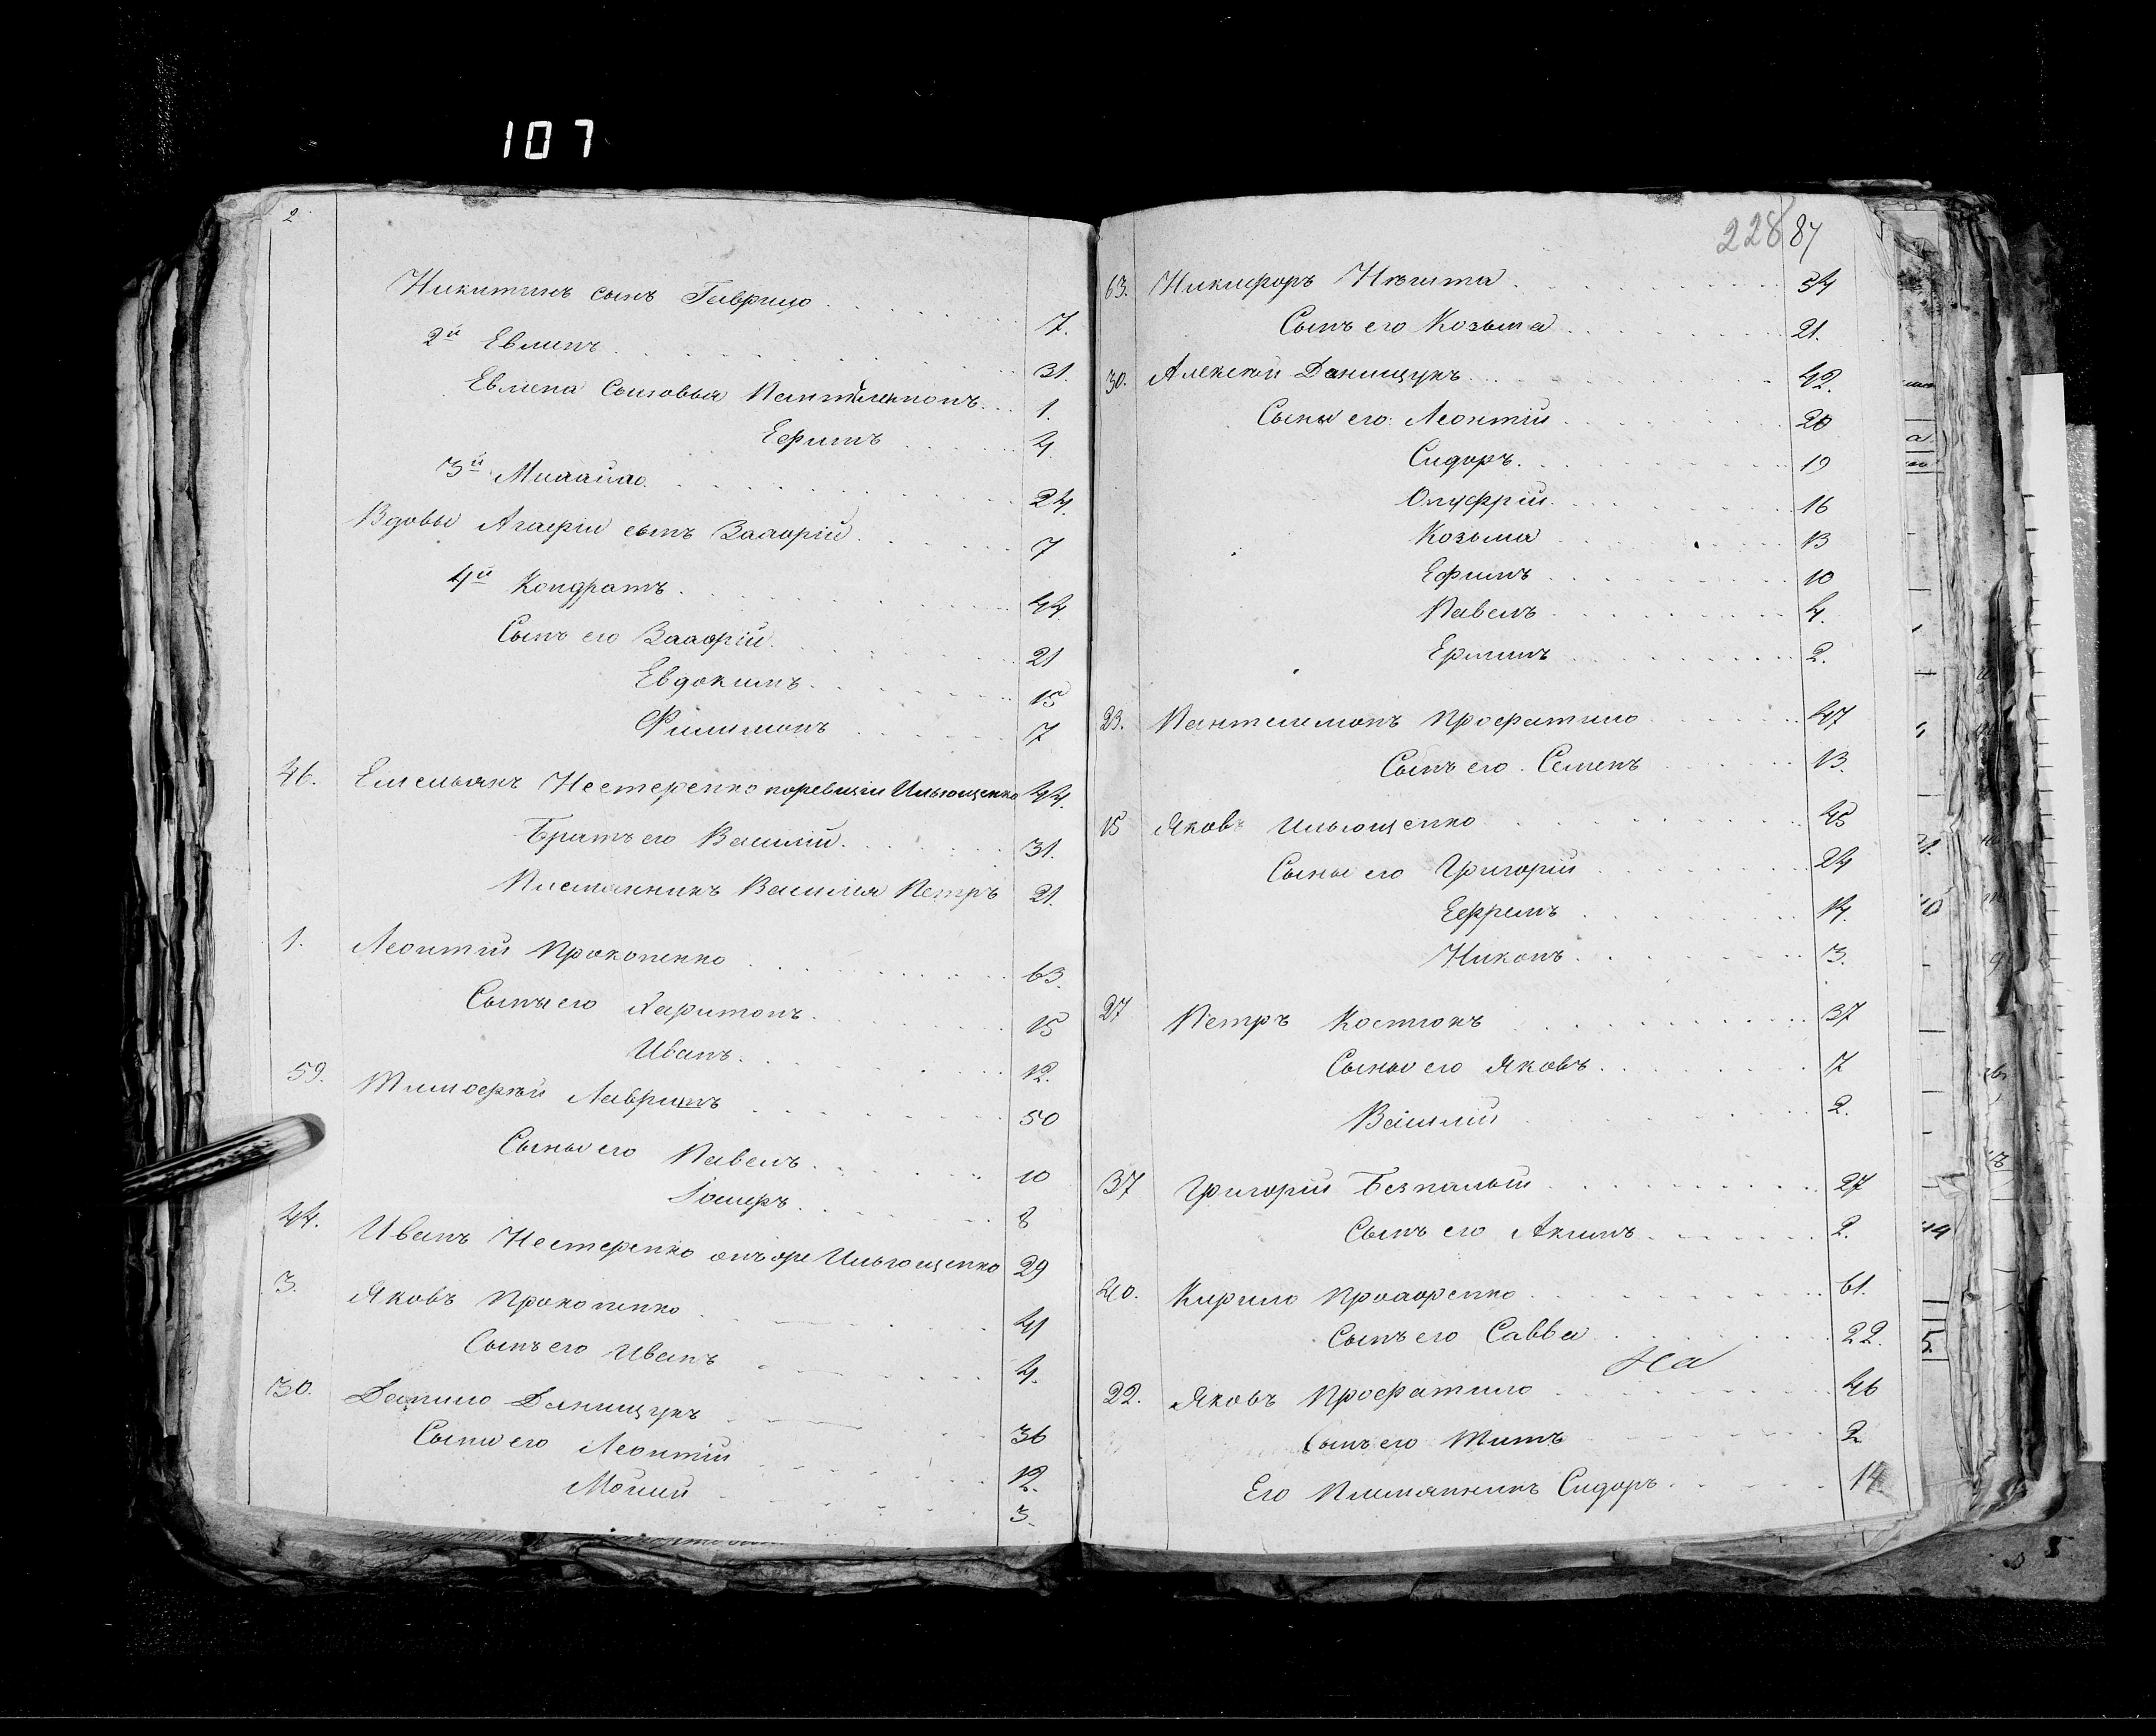 107
2
Никитинъ сынъ Гаврило 7.
2й Евлипъ 31.
Евлипа Сыновья Пантелимонъ 1.
Ефимъ 4
3й Михайло 24.
Вдовы Агафіи сынъ Захарій 7
4й Кондратъ 44.
Сынъ его Захарій 21
Евдокимъ 15
Филимонъ 7
46. Емельянъ Нестеренко Ильющенко 44.
Братъ его Василій 31.
Племянникъ Василья Петръ 21.
1. Леонтій Прокопенко 63.
Сыны его Харитонъ 15
Иванъ 12.
59. Тимофей Лавринъ 50
Сыны его Павелъ 10
8
44. Иванъ Нестеренко онъ же Ильющенко 29
3. Яковъ Прокопенко 41
Сынъ его Иванъ 4.
30. Данило Данищукъ 36
Сыны его Леонтій 12.
Мойсій 3.
228 87
63. Никифоръ 54
Сынъ его Козьма 21.
30. Алексій Данищукъ 42.
Сыны его Леонтій 20
Сидоръ 19
Онуфрій 16
Козьма 13
Ефимъ 10
Павелъ 4.
2.
23. Пантелимонъ Профатило 47
Сынъ его Семенъ 13.
15 Яковъ Ильющенко 45
Сыны его Григорій 24
Ефремъ 14.
Никонъ 3.
27 Петръ Костюкъ 37
Сыны его Яковъ 7
Василій 2.
37 Григорій Безпалый 27
Сынъ его Акимъ 2.
40. Кирило Прохоренко 61.
Сынъ его Савва 22.
На
22. Яковъ Профатило 46
Сынъ его Титъ 2
Его Племянникъ Сидоръ 14